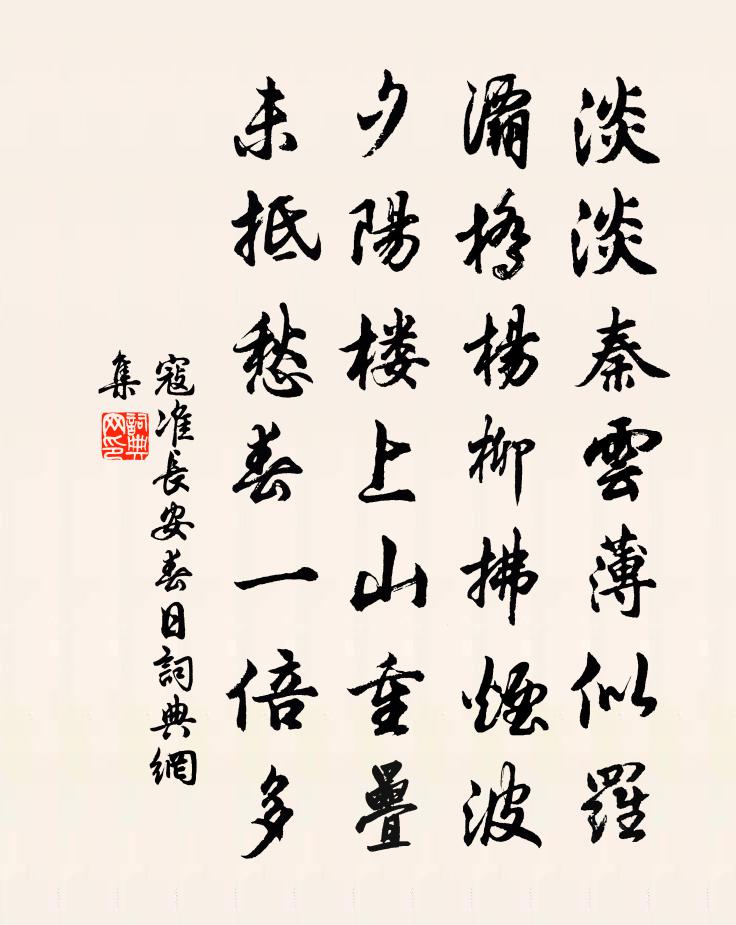 淡淡秦雲薄似羅
灞橋楊柳拂煙波
夕陽楼上山重疊
未抵愁春一倍多
寇准長安春日詞典網
集
詞典
网印